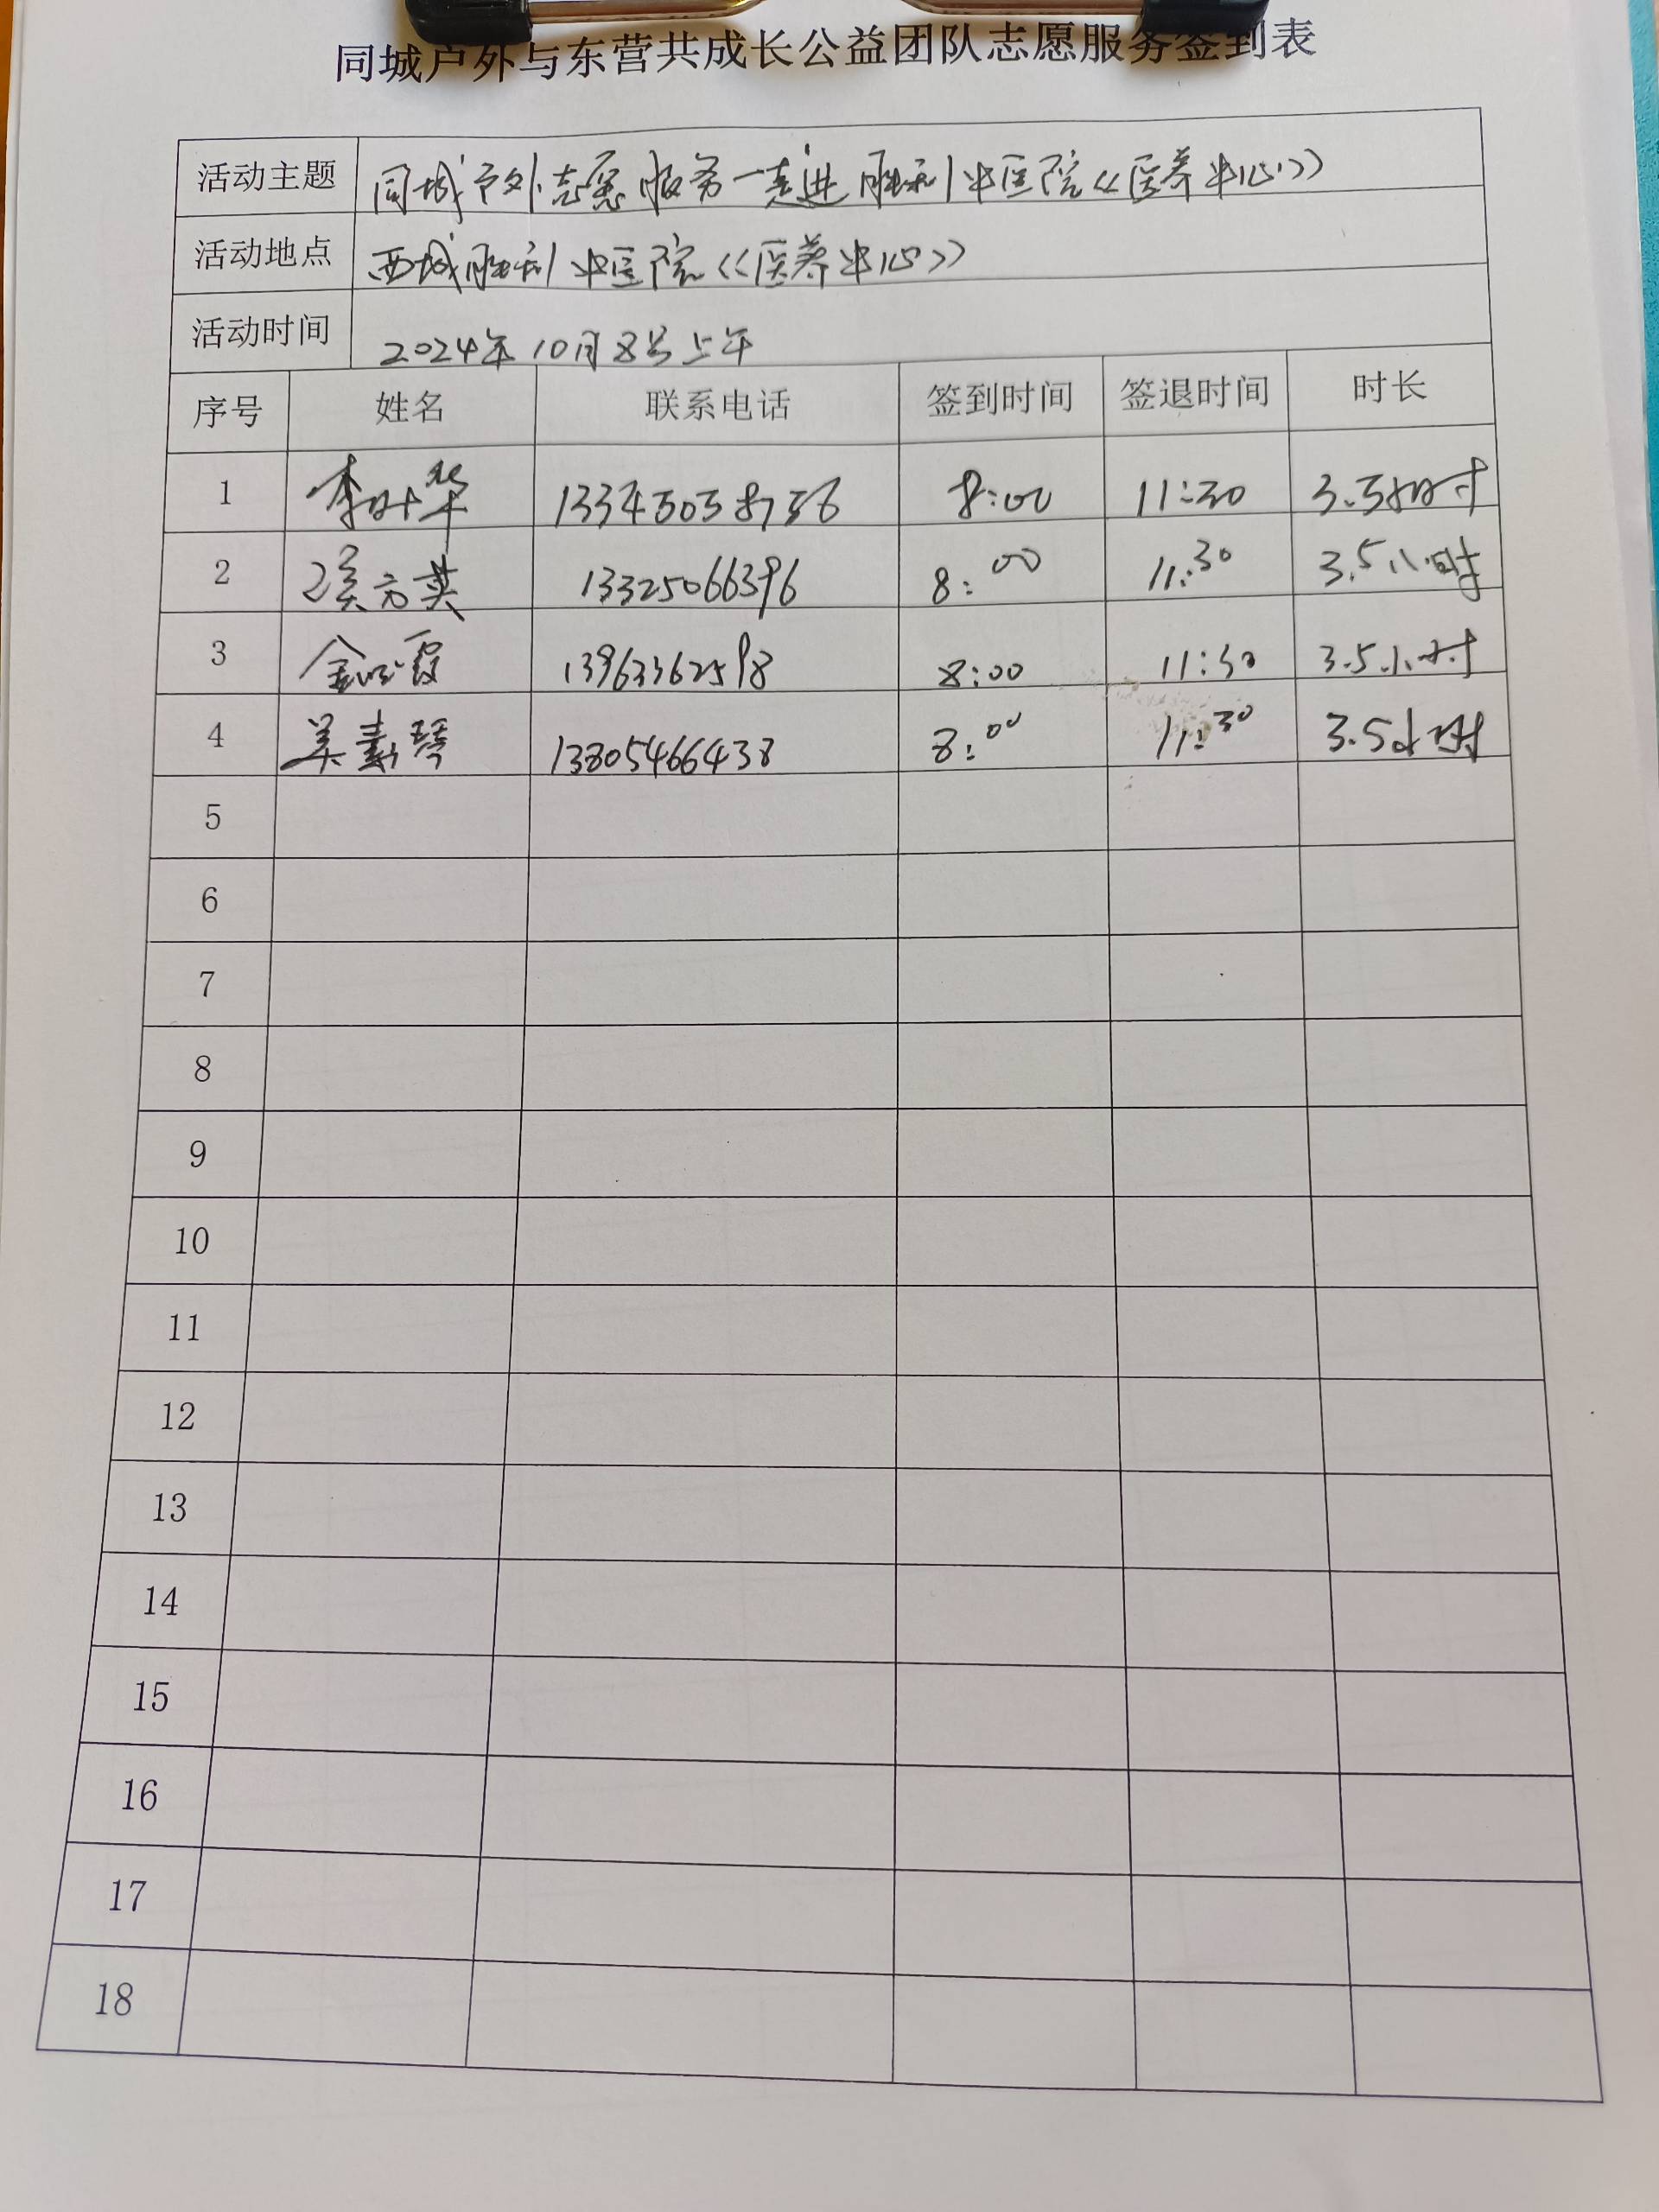 同城户外与东营共成长公益团队志愿服务签到表
活动主题 同城户外志愿服务一走进胜利中医院《医养中心》
活动地点 西城胜利中医院《医养中心》
活动时间 2024年10月8号上午
序号 姓名 联系电话 签到时间 签退时间 时长
1 李叶华 8:00 11:30 3.5小时
2 方英 13325066396 8:00 11:30 3.5小时
3 金 霞 13963362598 8:00 11:30 3.5小时
4 吴素琴 13805466438 8:00 11:30 3.5小时
5
6
7
8
9
10
11
12
13
14
15
16
17
18